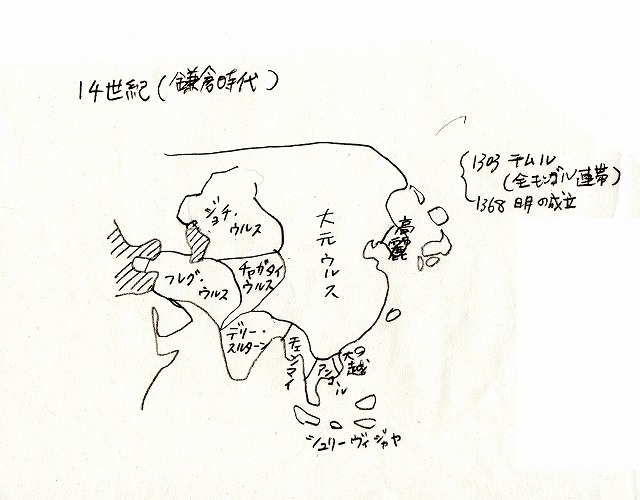 14世紀(鎌倉時代)
1303 テムル
(全モンゴル連帯)
1368 明の成立
ジョチ・
ウルス
大元ウルス
高麗
フレグ・
ウルス
チャガタイ
ウルス
デリー・
スルターン
チェンマイ
アンコール
大越
シュリーヴィジャヤ